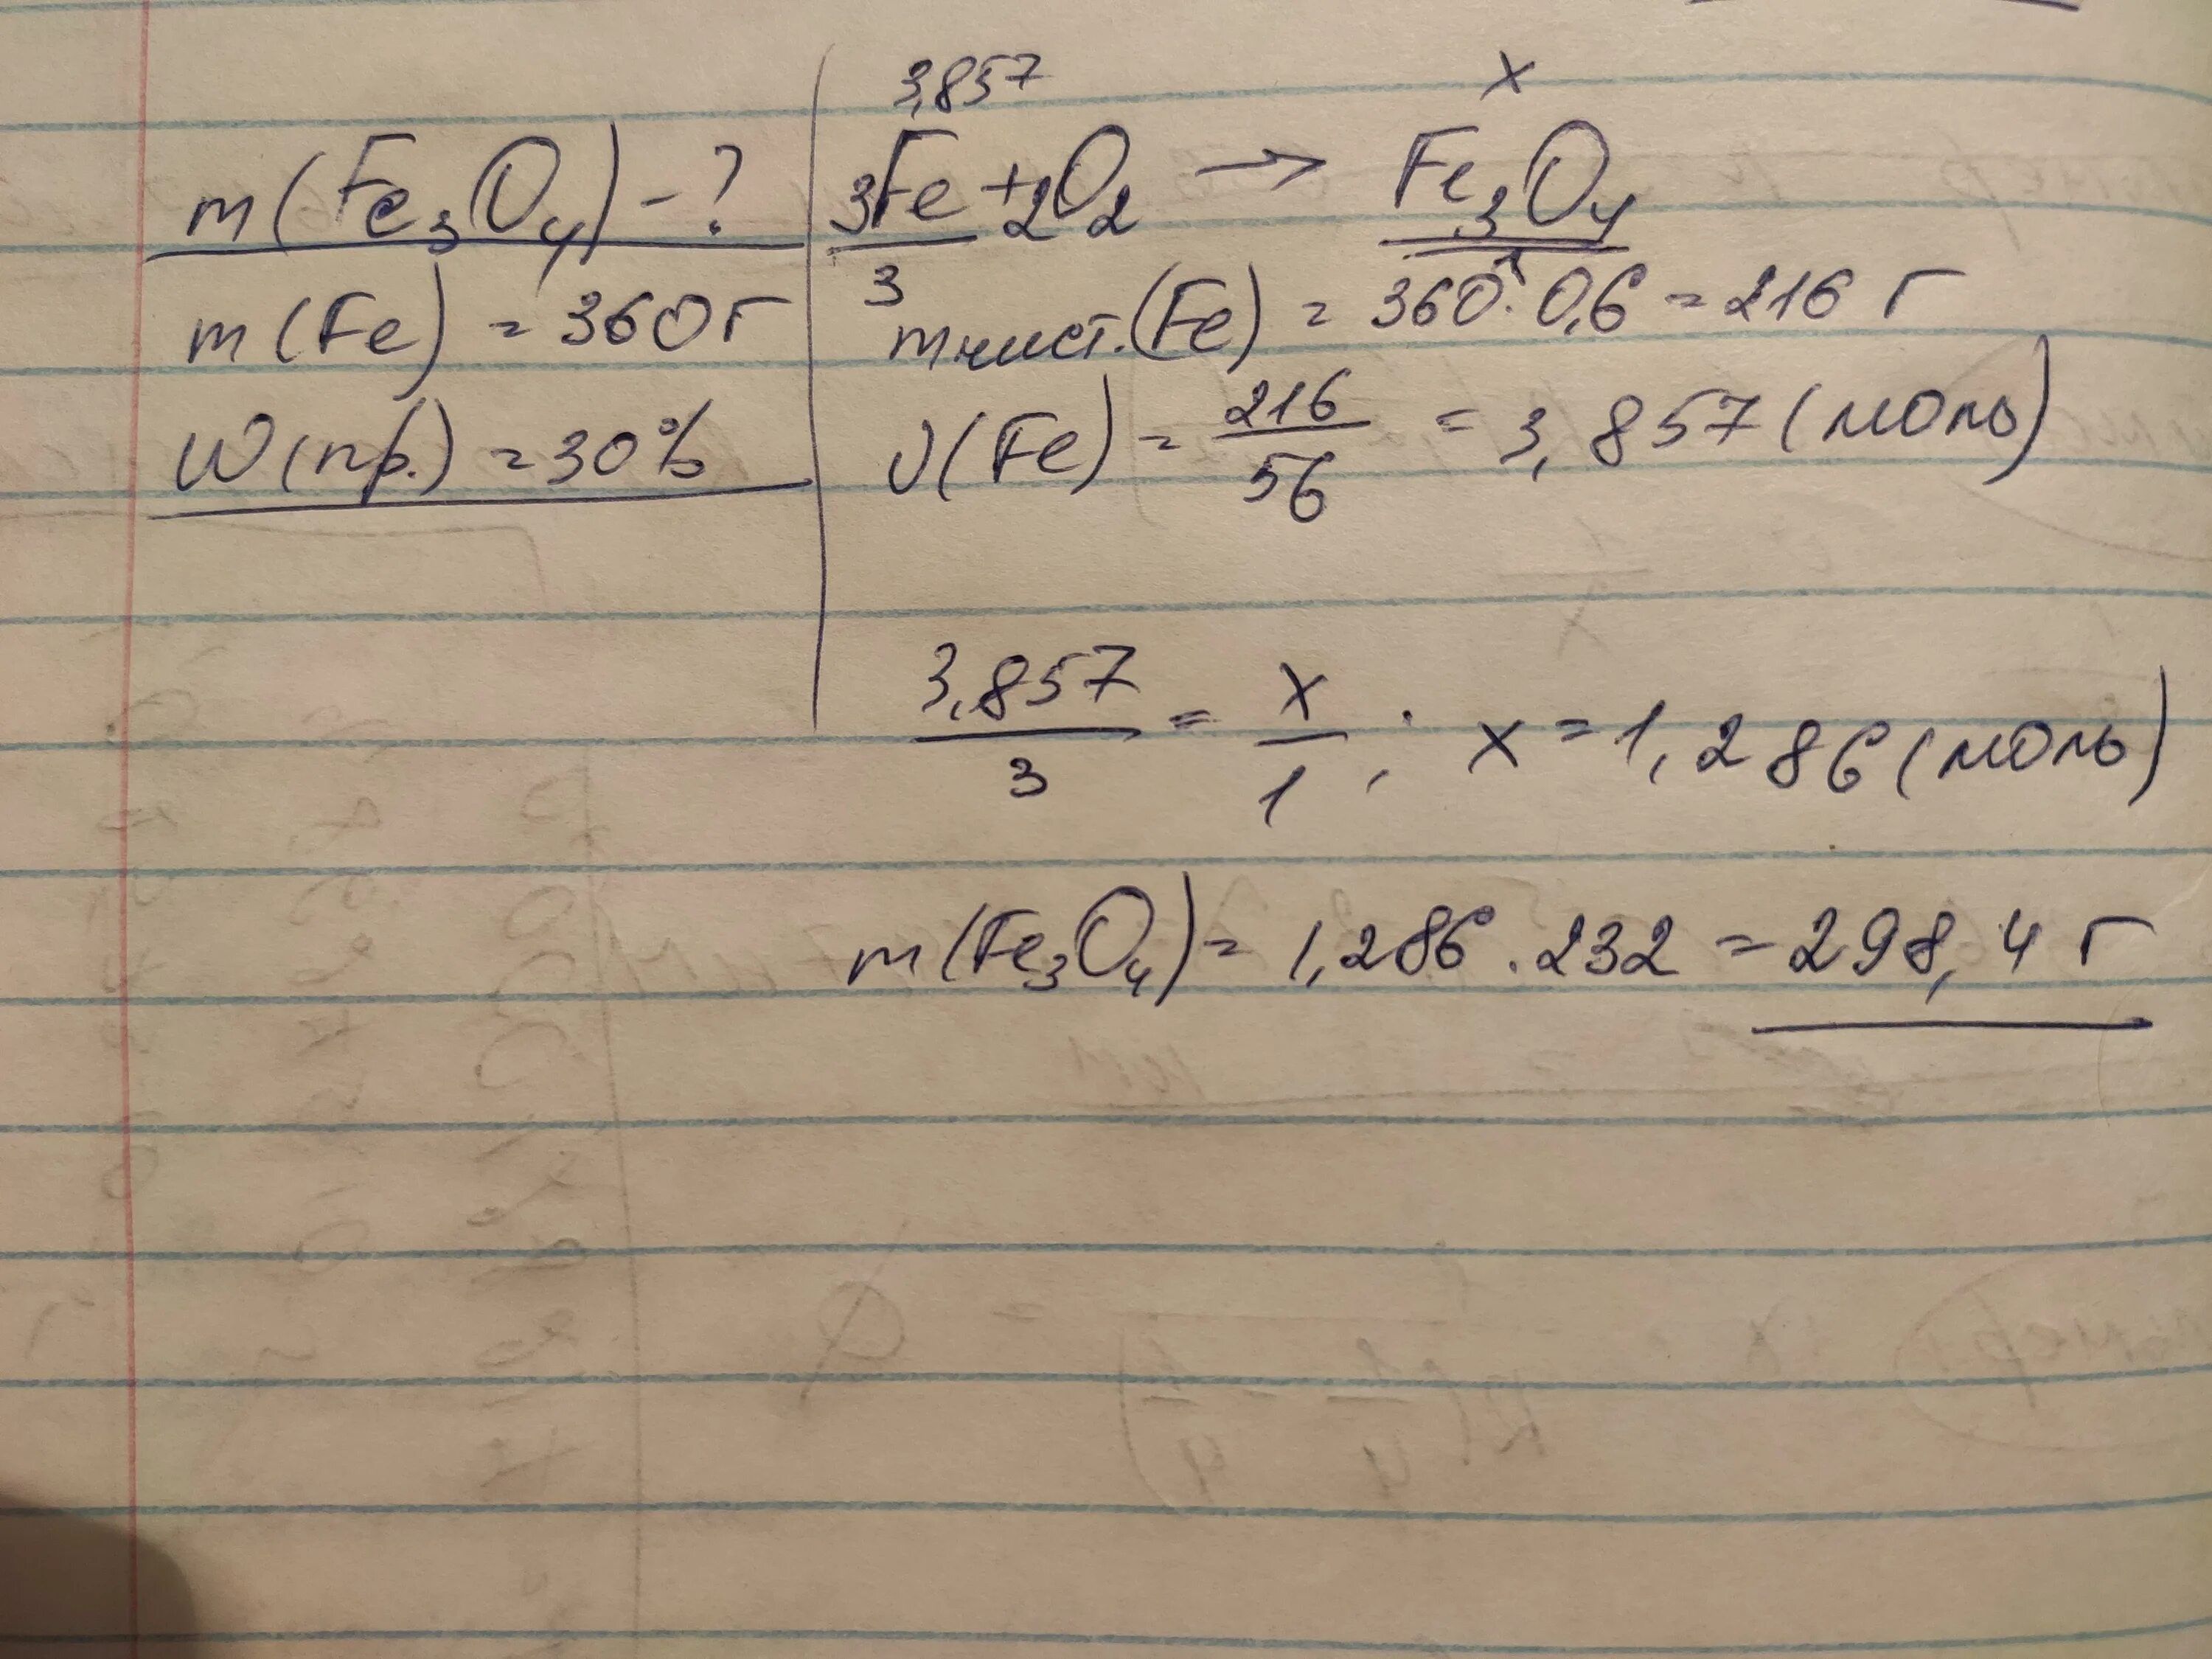 m(Fe₃O₄) - ?
m(Fe) = 360 г
W(пр.) = 30%
3,857 x
3Fe + 2O₂ → Fe₃O₄
3 1
m чист.(Fe) = 360 · 0,6 = 216 г
ν(Fe) = 216/56 = 3,857 (моль)
3,857/3 = x/1 ; x = 1,286 (моль)
m(Fe₃O₄) = 1,286 · 232 = 298,4 г